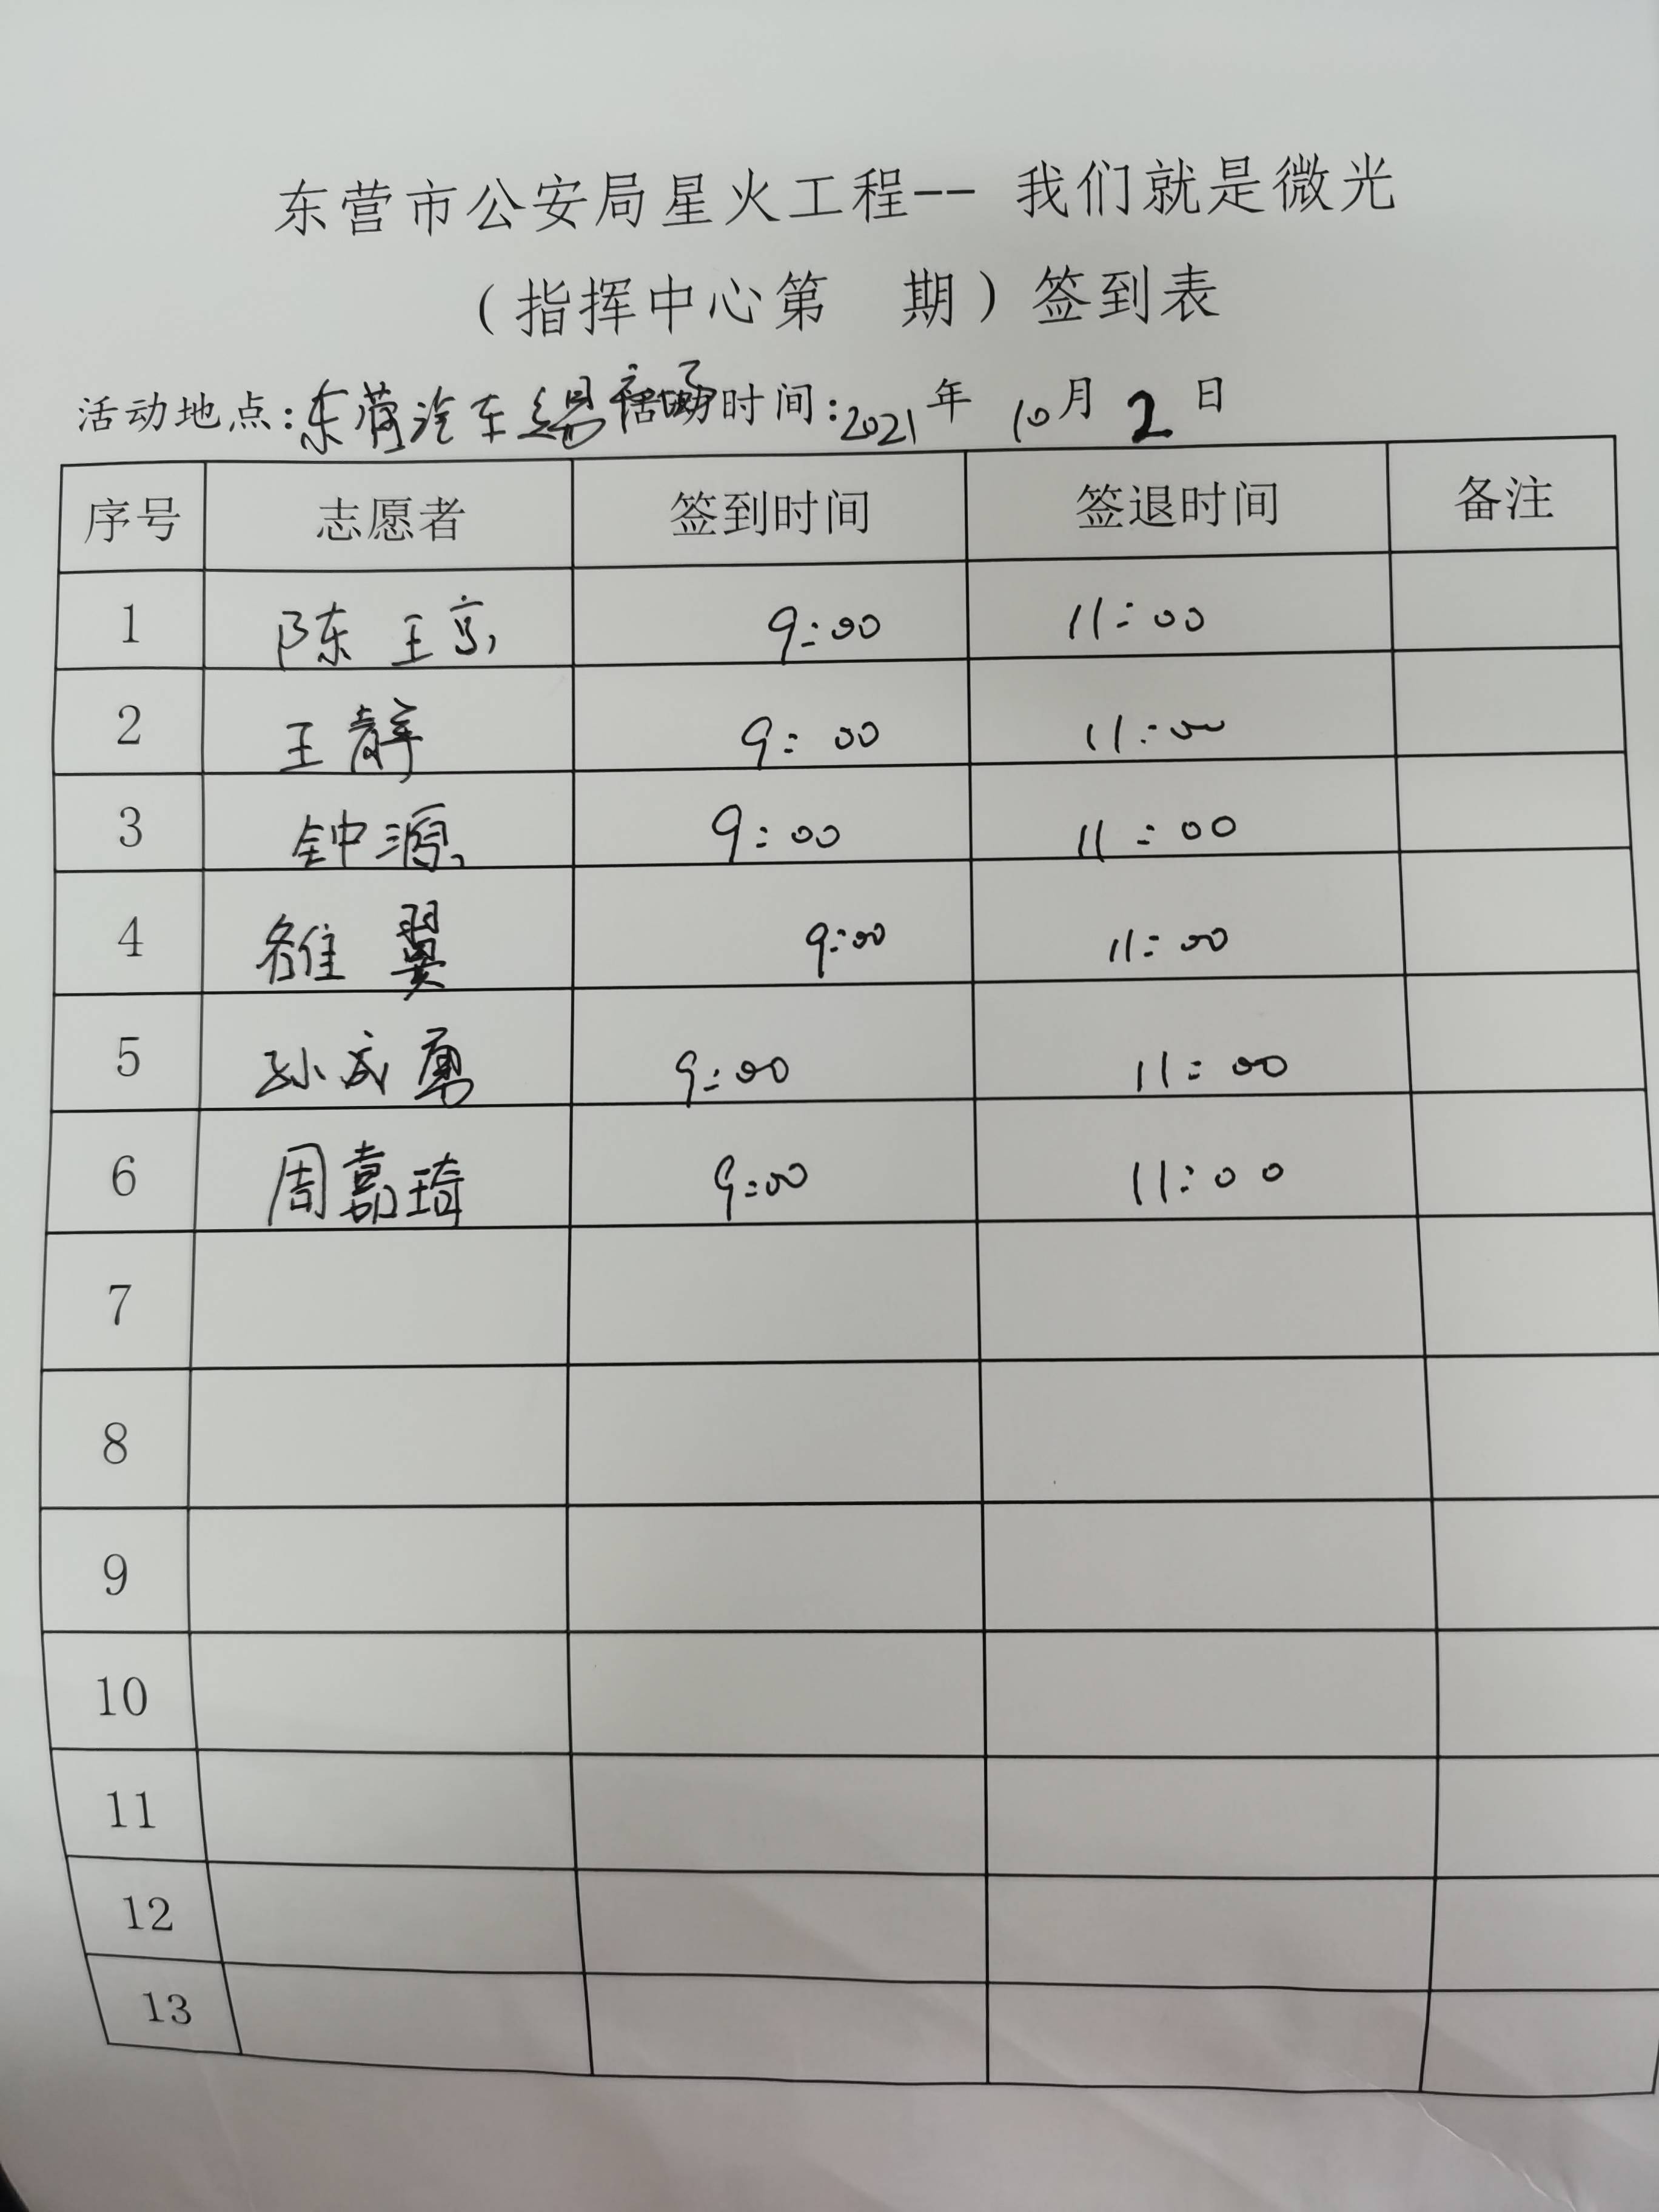 东营市公安局星火工程-- 我们就是微光
（指挥中心第 期）签到表
活动地点:东营汽车总站 活动时间:2021年 10月 2 日
序号 志愿者 签到时间 签退时间 备注
1 陈 9:00 11:00
2 王静 9:00 11:00
3 钟源 9:00 11:00
4 翼 9:00 11:00
5 孙成勇 9:00 11:00
6 周嘉琦 9:00 11:00
7
8
9
10
11
12
13